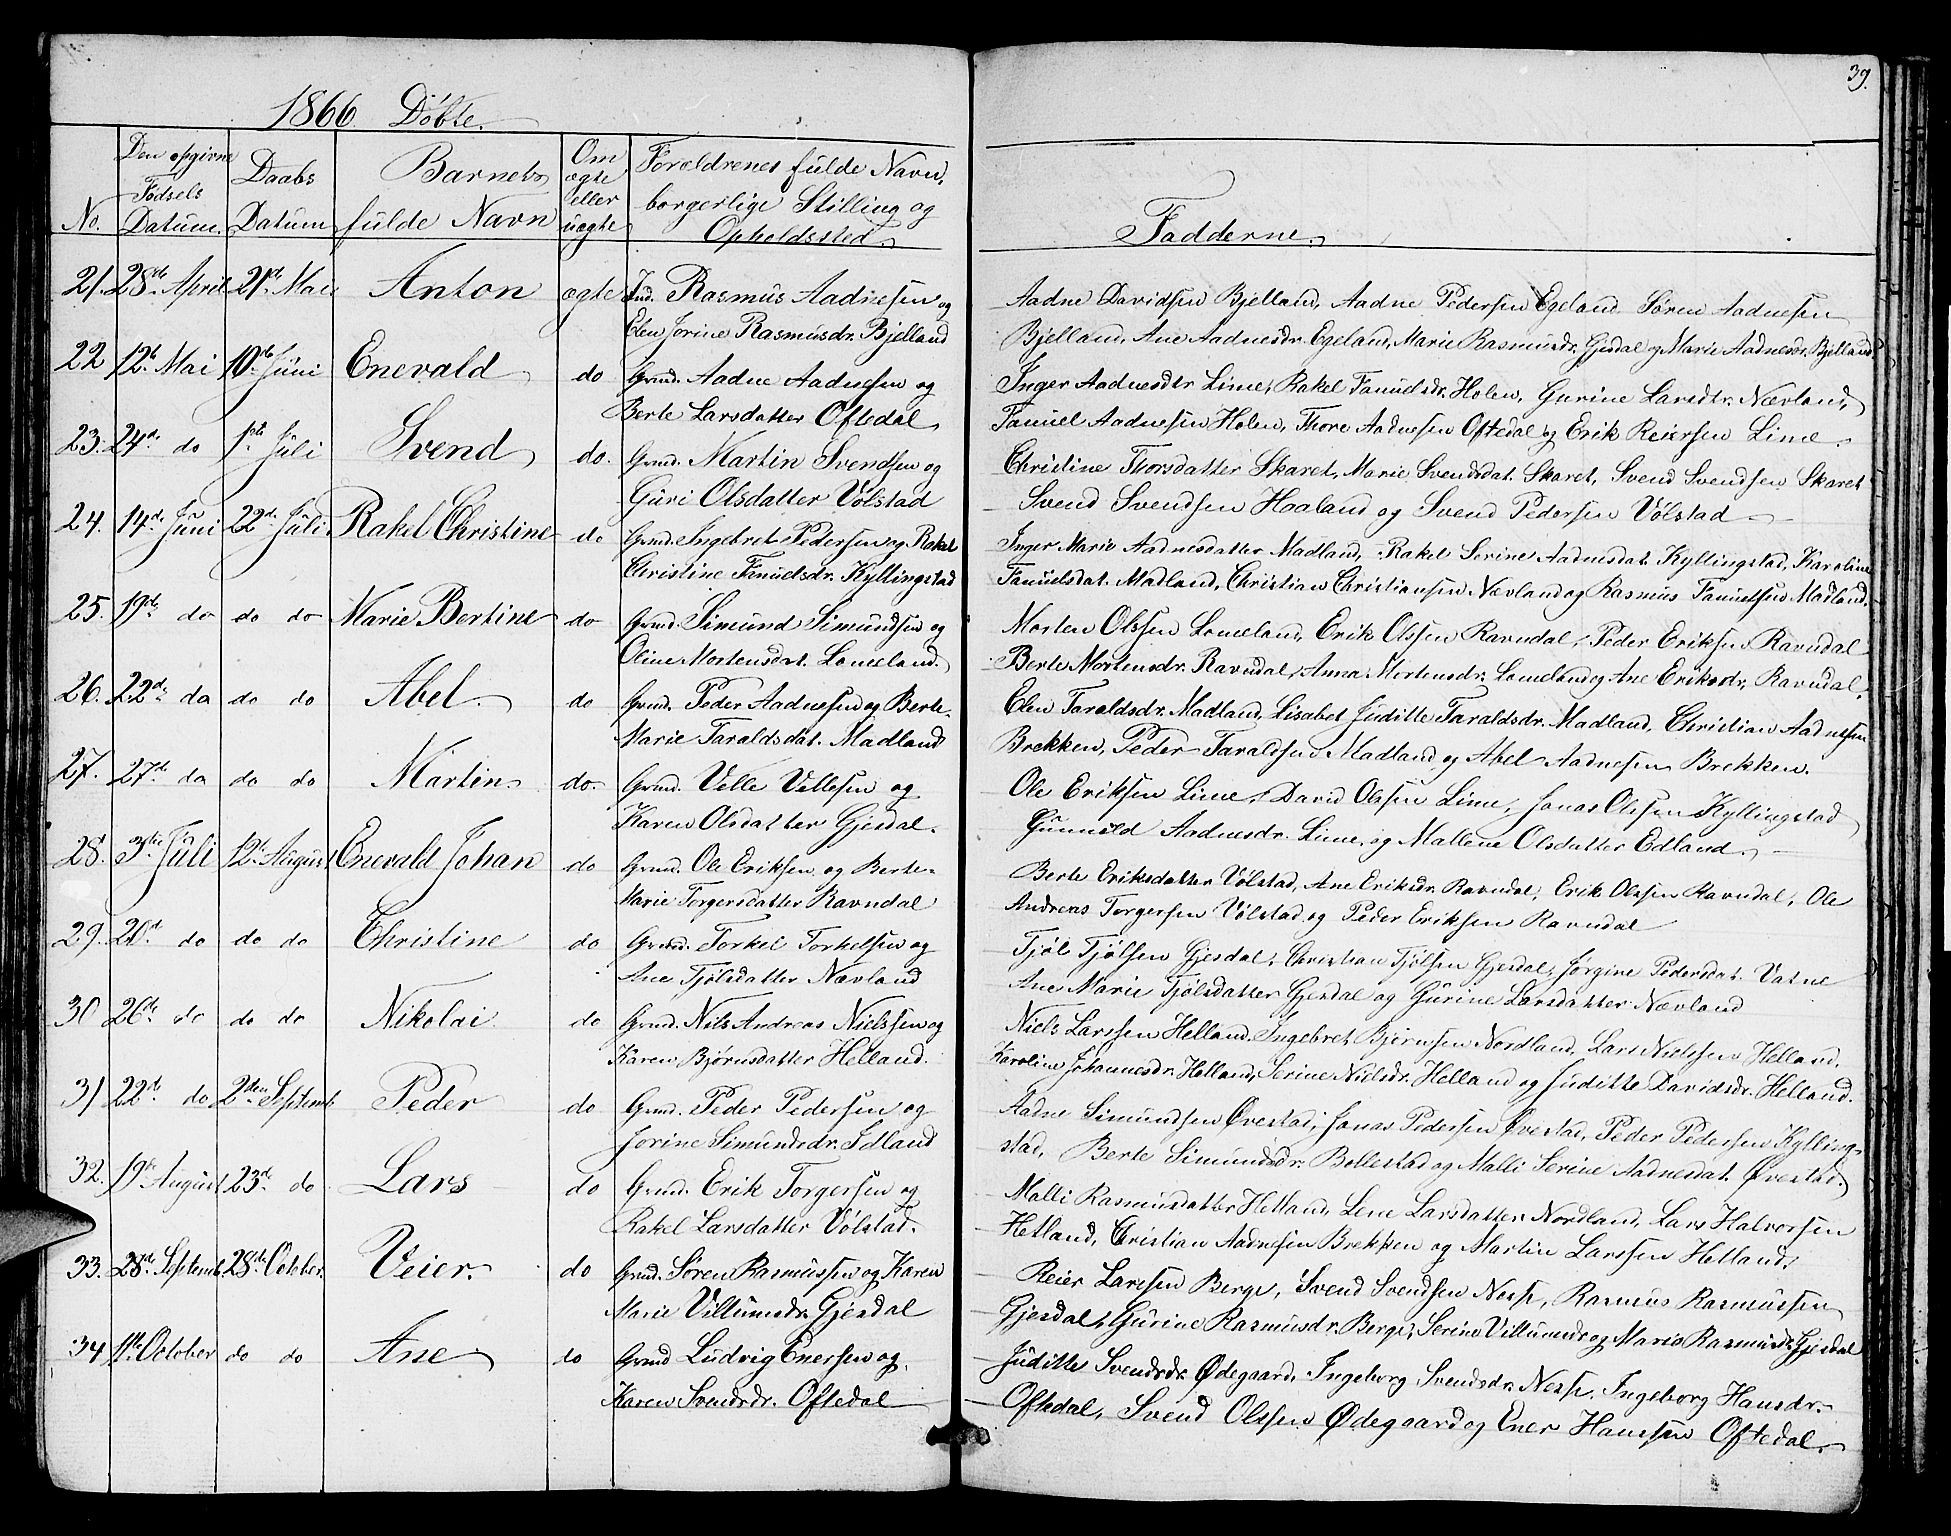 39.
1866 Døbte.
No.
Den opgivne Fødsels Datum.
Daabs Datum
Barnets fulde Navn
Om ægte eller uægte
Forældrenes fulde Navn, borgerlige Stilling og Opholdssted
Fadderne.
21. 28de April 21de Mai Anton ægte Ind. Rasmus Aadnesen og
Elen Jorine Rasmusdr. Bjelland
Aadne Davidsen Bjelland, Aadne Pedersen Egeland Søren Aadnesen
Bjelland, Ane Aadnesdr. Egeland, Marie Rasmusdr. Gjesdal og Marie Aadnesdr. Bjelland.
22 12te Mai 10de Juni Enevald do Grmd. Aadne Aadnesen og
Berte Larsdatter Oftedal
Inger Aadnesdtr Lime, Rakel Fanuelsdr. Holen, Gurine Larsdtr. Nævland,
Fanuel Aadnesen Holen, Thore Aadnesen Oftedal og Erik Reiersen Lime.
23. 24de do 1ste Juli Svend do. Grmd. Martin Svendsen og
Guri Olsdatter Vølstad
Christine Thorsdatter Skaret, Marie Svendsdat. Skaret, Svend Svendsen Skaret
Svend Svendsen Haaland og Svend Pedersen Vølstad
24. 14de Juni 22de Juli. Rakel Christine do Grmd. Ingebret Pedersen og Rakel
Christine Fanuelsdr. Kyllingstad
Inger Marie Aadnesdatter Madland, Rakel Serine Aadnesdat. Kyllingstad, Karoline
Fanuelsdat. Madland, Christian Christiansen Nævland og Rasmus Fanuelsen Madland.
25. 19de do do do Marie Bertine do Grmd. Simund Simundsen og
Oline Mortensdat. Lomeland.
Morten Olssen Lomeland, Erik Olssen Ravndal, Peder Eriksen Ravndal
Berte Mortensdr. Ravndal, Anna Mortensdr. Lomeland og Ane Eriksdr. Ravndal.
26. 22de do do do Abel. do Grmd. Peder Aadnesen og Berte
Marie Taraldsdat. Madland
Elen Taraldsdr. Madland, Lisabet Juditte Taraldsdr. Madland, Christian Aadnesen
Brekken, Peder Taraldsen Madland og Abel Aadnesen Brekken.
27. 27de do do do Martin do. Grmd. Velle Vellesen og
Karen Olsdatter Gjesdal.
Ole Eriksen Lime, David Olssen Lime, Jonas Olssen Kyllingstad
Gunnild Aadnesdr. Lime, og Mallene Olsdatter Edland.
28. 3die Juli 12te August Enevald Johan do Grmd. Ole Eriksen og Berte
Marie Torgersdatter Ravndal
Berte Eriksdatter Vølstad, Ane Eriksdr. Ravndal, Erik Olssen Ravndal, Ole
Andreas Torgersen Vølstad og Peder Eriksen Ravndal
29. 20de do do do Christine do Grmd. Torkel Torkelsen og
Ane Tjølsdatter Nævland
Tjøl Tjølsen Gjesdal, Christian Tjølsen Gjesdal, Jørgine Pedersdat. Vatne
Ane Marie Tjølsdatter Gjesdal og Gurine Larsdatter Nævland
30 26de do do do Nikolai do Grmd. Nils Andreas Nielssen og
Karen Bjørnsdatter Helland.
Niels Larssen Helland, Ingebret Bjørnsen Nordland, Lars Nielssen Helland.
Karoline Johannesdr. Helland, Serine Nielsdr. Helland og Juditte Davidsdr. Helland.
31 22de do 2den Septemb. Peder do Grmd. Peder Pedersen og
Jorine Simundsdr. Idland
Aadne Simundsen Øvestad, Jonas Pedersen Øvestad, Peder Pedersen Kylling-
stad, Berte Simundsdr. Bollestad og Malli Serine Aadnesdat. Øvestad.
32. 19de August 23de do Lars do Grmd. Erik Torgersen og
Rakel Larsdatter Vølstad.
Malli Rasmusdatter Hetland, Lene Larsdatter Nordland, Lars Halvorsen
Hetland, Christian Aadnesen Brekken og Martin Larssen Hetland,
33. 28de Septemb. 28de October. Veier. do Grmd. Søren Rasmussen og Karen
Marie Villumsdr. Gjesdal
Reier Larssen Berge, Svend Svendsen Nese, Rasmus Rasmussen
Gjesdal, Gurine Rasmusdr. Berge, Serine Villumsdr og Marie Rasmusdr. Gjesdal
34 1ste October do do Ane do Grmd Ludvig Enersen og
Karen Svendsdr. Oftedal
Juditte Svendsdr. Ødegaard, Ingeborg Svendsdr. Nese, Ingeborg Hansdr.
Oftedal, Svend Olssen Ødegaard og Ener Hanssen Oftedal.